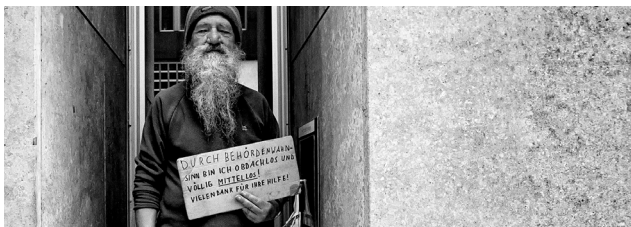 DURCH BEHÖRDENWAHN-
SINN BIN ICH OBDACHLOS UND
VÖLLIG MITTELLOS!
VIELEN DANK FÜR IHRE HILFE!